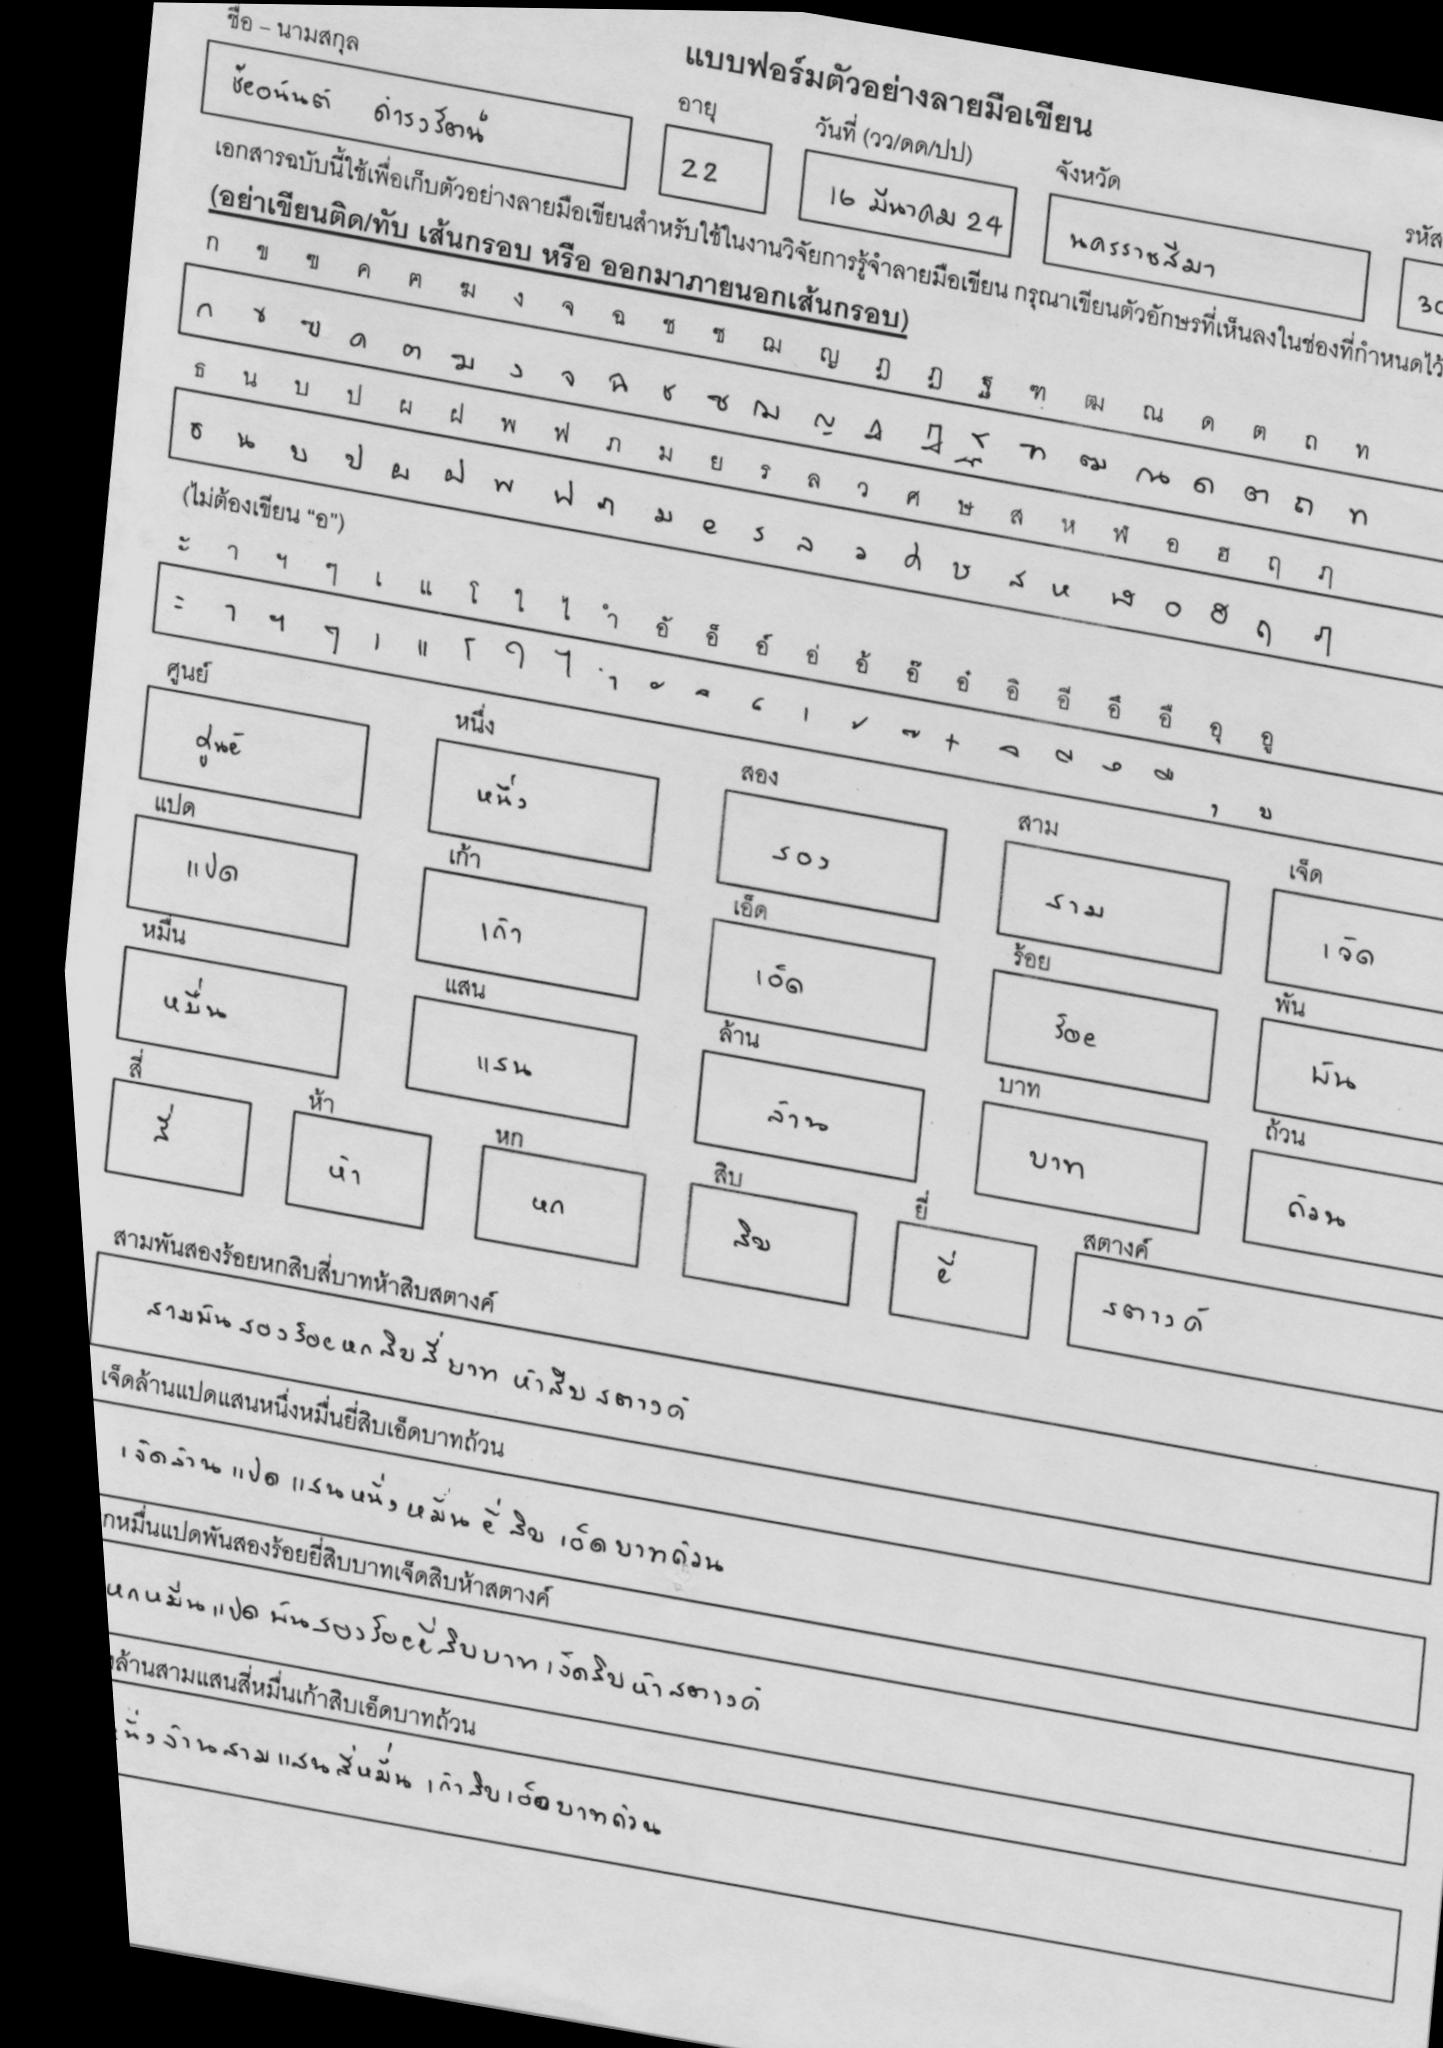 แบบฟอร์มตัวอย่างลายมือเขียน
ชื่อ – นามสกุล อายุ วันที่ (วว/ดด/ปป) จังหวัด รหัส
22 16 มีนาคม 24 นครราชสีมา 30
เอกสารฉบับนี้ใช้เพื่อเก็บตัวอย่างลายมือเขียนสำหรับใช้ในงานวิจัยการรู้จำลายมือเขียน กรุณาเขียนตัวอักษรที่เห็นลงในช่องที่กำหนดไว้
(อย่าเขียนติด/ทับ เส้นกรอบ หรือ ออกมาภายนอกเส้นกรอบ)
ก ข ฃ ค ฅ ฆ ง จ ฉ ช ซ ฌ ญ ฎ ฏ ฐ ฑ ฒ ณ ด ต ถ ท
ก ข ฃ ค ฅ ฆ ง จ ฉ ช ซ ฌ ญ ฎ ฏ ฐ ฑ ฒ ณ ด ต ถ ท
ธ น บ ป ผ ฝ พ ฟ ภ ม ย ร ล ว ศ ษ ส ห ฬ อ ฮ ฤ ฦ
ธ น บ ป ผ ฝ พ ฟ ภ ม ย ร ล ว ศ ษ ส ห ฬ อ ฮ ฤ ฦ
(ไม่ต้องเขียน “อ”)
ะ า ฯ ๆ เ แ โ ใ ไ ำ อั อ็ อ์ อ่ อ้ อ๊ อ๋ อิ อี อึ อื อุ อู
ะ า ฯ ๆ เ แ โ ใ ไ ำ ั ็ ์ ่ ้ ๊ ๋ ิ ี ึ ื ุ ู
ศูนย์ หนึ่ง สอง สาม เจ็ด
ศูนย์ หนึ่ง สอง สาม เจ็ด
แปด เก้า เอ็ด ร้อย พัน
แปด เก้า เอ็ด ร้อย พัน
หมื่น แสน ล้าน บาท ถ้วน
หมื่น แสน ล้าน บาท ถ้วน
สี่ ห้า หก สิบ ยี่ สตางค์
สี่ ห้า หก สิบ ยี่ สตางค์
สามพันสองร้อยหกสิบสี่บาทห้าสิบสตางค์
สามพันสองร้อยหกสิบสี่บาท ห้าสิบ สตางค์
เจ็ดล้านแปดแสนหนึ่งหมื่นยี่สิบเอ็ดบาทถ้วน
เจ็ดล้าน แปด แสนหนึ่งหมื่น ยี่ สิบ เอ็ดบาทถ้วน
กหมื่นแปดพันสองร้อยยี่สิบบาทเจ็ดสิบห้าสตางค์
หกหมื่นแปด พันสองร้อยยี่สิบบาท เจ็ดสิบห้าสตางค์
ล้านสามแสนสี่หมื่นเก้าสิบเอ็ดบาทถ้วน
นึ่งล้านสามแสนสี่หมื่น เก้าสิบเอ็ดบาทถ้วน